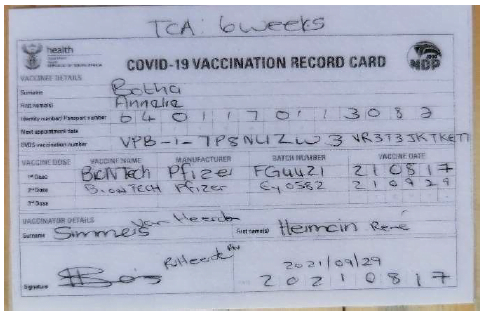 TCA: 6 weeks
health
NDP
COVID-19 VACCINATION RECORD CARD
VACCINEE DETAILS
Surname Botha
First name(s) Annelie
Identity number/ Passport number 6 4 0 1 1 7 0 1 1 3 0 8 2
Next appointment date
EVDS vaccination number VPB-1-
VACCINE DOSE VACCINE NAME MANUFACTURER BATCH NUMBER VACCINE DATE
1st Dose BioNTech Pfizer FG4421 2 1 0 8 1 7
2nd Dose BIONTECH Pfizer 2 1 0 9 2 9
3rd Dose
VACCINATOR DETAILS
Surname Simmers First name(s) René
2021/09/29
Signature 2 0 2 1 0 8 1 7